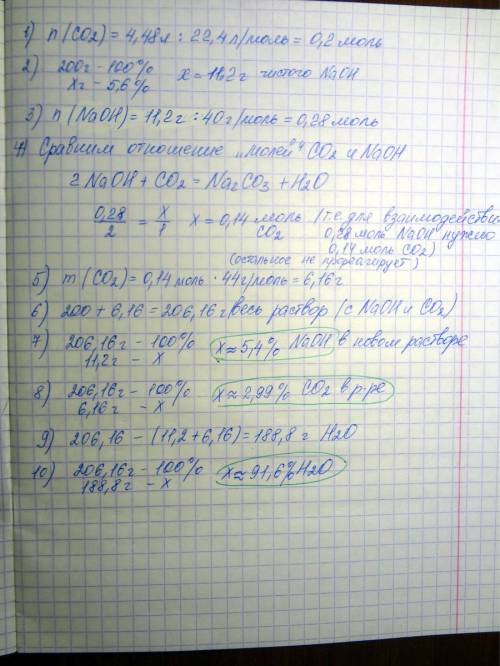 1) n (CO2) = 4,48л : 22,4 л/моль = 0,2 моль
2) 200г - 100%
xг - 5,6% x = 11,2 г чистого NaOH
3) n (NaOH) = 11,2 г : 40 г/моль = 0,28 моль
4) Сравним отношение „молей" CO2 и NaOH
2 NaOH + CO2 = Na2CO3 + H2O
0,28/2 = x/1 x = 0,14 моль CO2 (т.е. для взаимодействия
0,28 моль NaOH нужно
0,14 моль CO2)
(остальное не прореагирует)
5) m (CO2) = 0,14 моль · 44 г/моль = 6,16 г
6) 200 + 6,16 = 206,16 г весь раствор (с NaOH и CO2)
7) 206,16 г - 100%
11,2 г - x x ≈ 5,4% NaOH в новом растворе
8) 206,16 г - 100%
6,16 г - x x ≈ 2,99% CO2 в р-ре
9) 206,16 - (11,2 + 6,16) = 188,8 г H2O
10) 206,16 г - 100%
188,8 г - x x ≈ 91,6% H2O